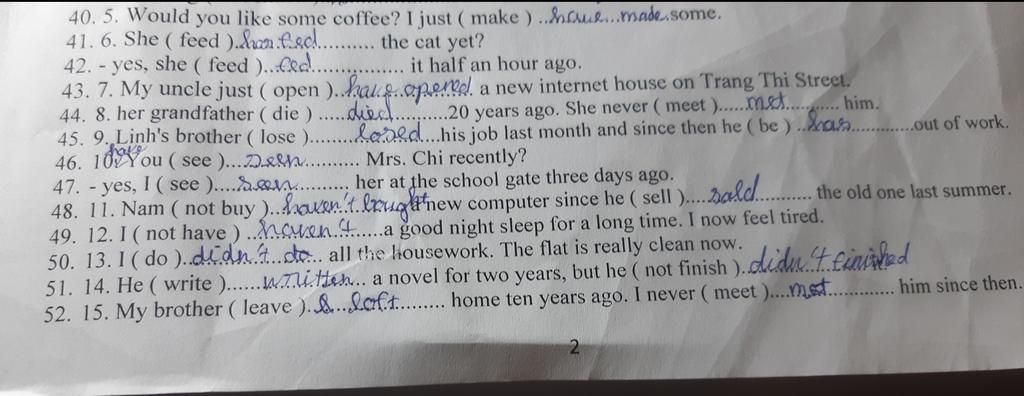 40. 5. Would you like some coffee? I just ( make ) ..have...made.some.
41. 6. She ( feed ).has.fed.......... the cat yet?
42. - yes, she ( feed )...fed................ it half an hour ago.
43. 7. My uncle just ( open )..have.opened. a new internet house on Trang Thi Street.
44. 8. her grandfather ( die ) .....died..........20 years ago. She never ( meet )......met.......... him.
45. 9. Linh's brother ( lose )........losed...his job last month and since then he ( be ) ..has............out of work.
46. 10. have You ( see )...seen............ Mrs. Chi recently?
47. - yes, I ( see )....seen......... her at the school gate three days ago.
48. 11. Nam ( not buy )..haven't bought new computer since he ( sell )....sald........... the old one last summer.
49. 12. I ( not have ) ..haven't.....a good night sleep for a long time. I now feel tired.
50. 13. I ( do ).didn't..do... all the housework. The flat is really clean now.
51. 14. He ( write )......written... a novel for two years, but he ( not finish ).didn't finished
52. 15. My brother ( leave )....left......... home ten years ago. I never ( meet )....met............. him since then.
2